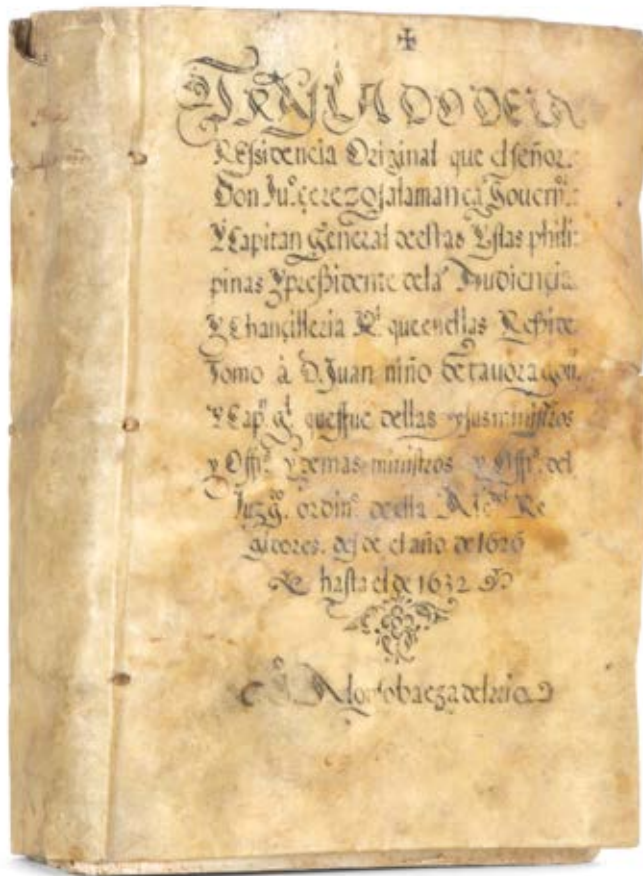 TRASLADO DE LA
Ressidencia Original que el señor
Don Ju.º çerezo salamanca Gouern.or
Y Capitan General destas Yslas phili-
pinas Y pressidente de la Audiencia
Y Chançilleria R.l que en ellas Reside
Tomo à D. Juan niño de tauora gou.
Y Cap.n g.l que fue dellas y sus ministros
y Offi.s y demas ministros y Offi.s del
Juzg.º ordin.º de ella Alc.des Re
gidores. desde el año de 1626
hasta el de 1632
Alonso baeza del rio